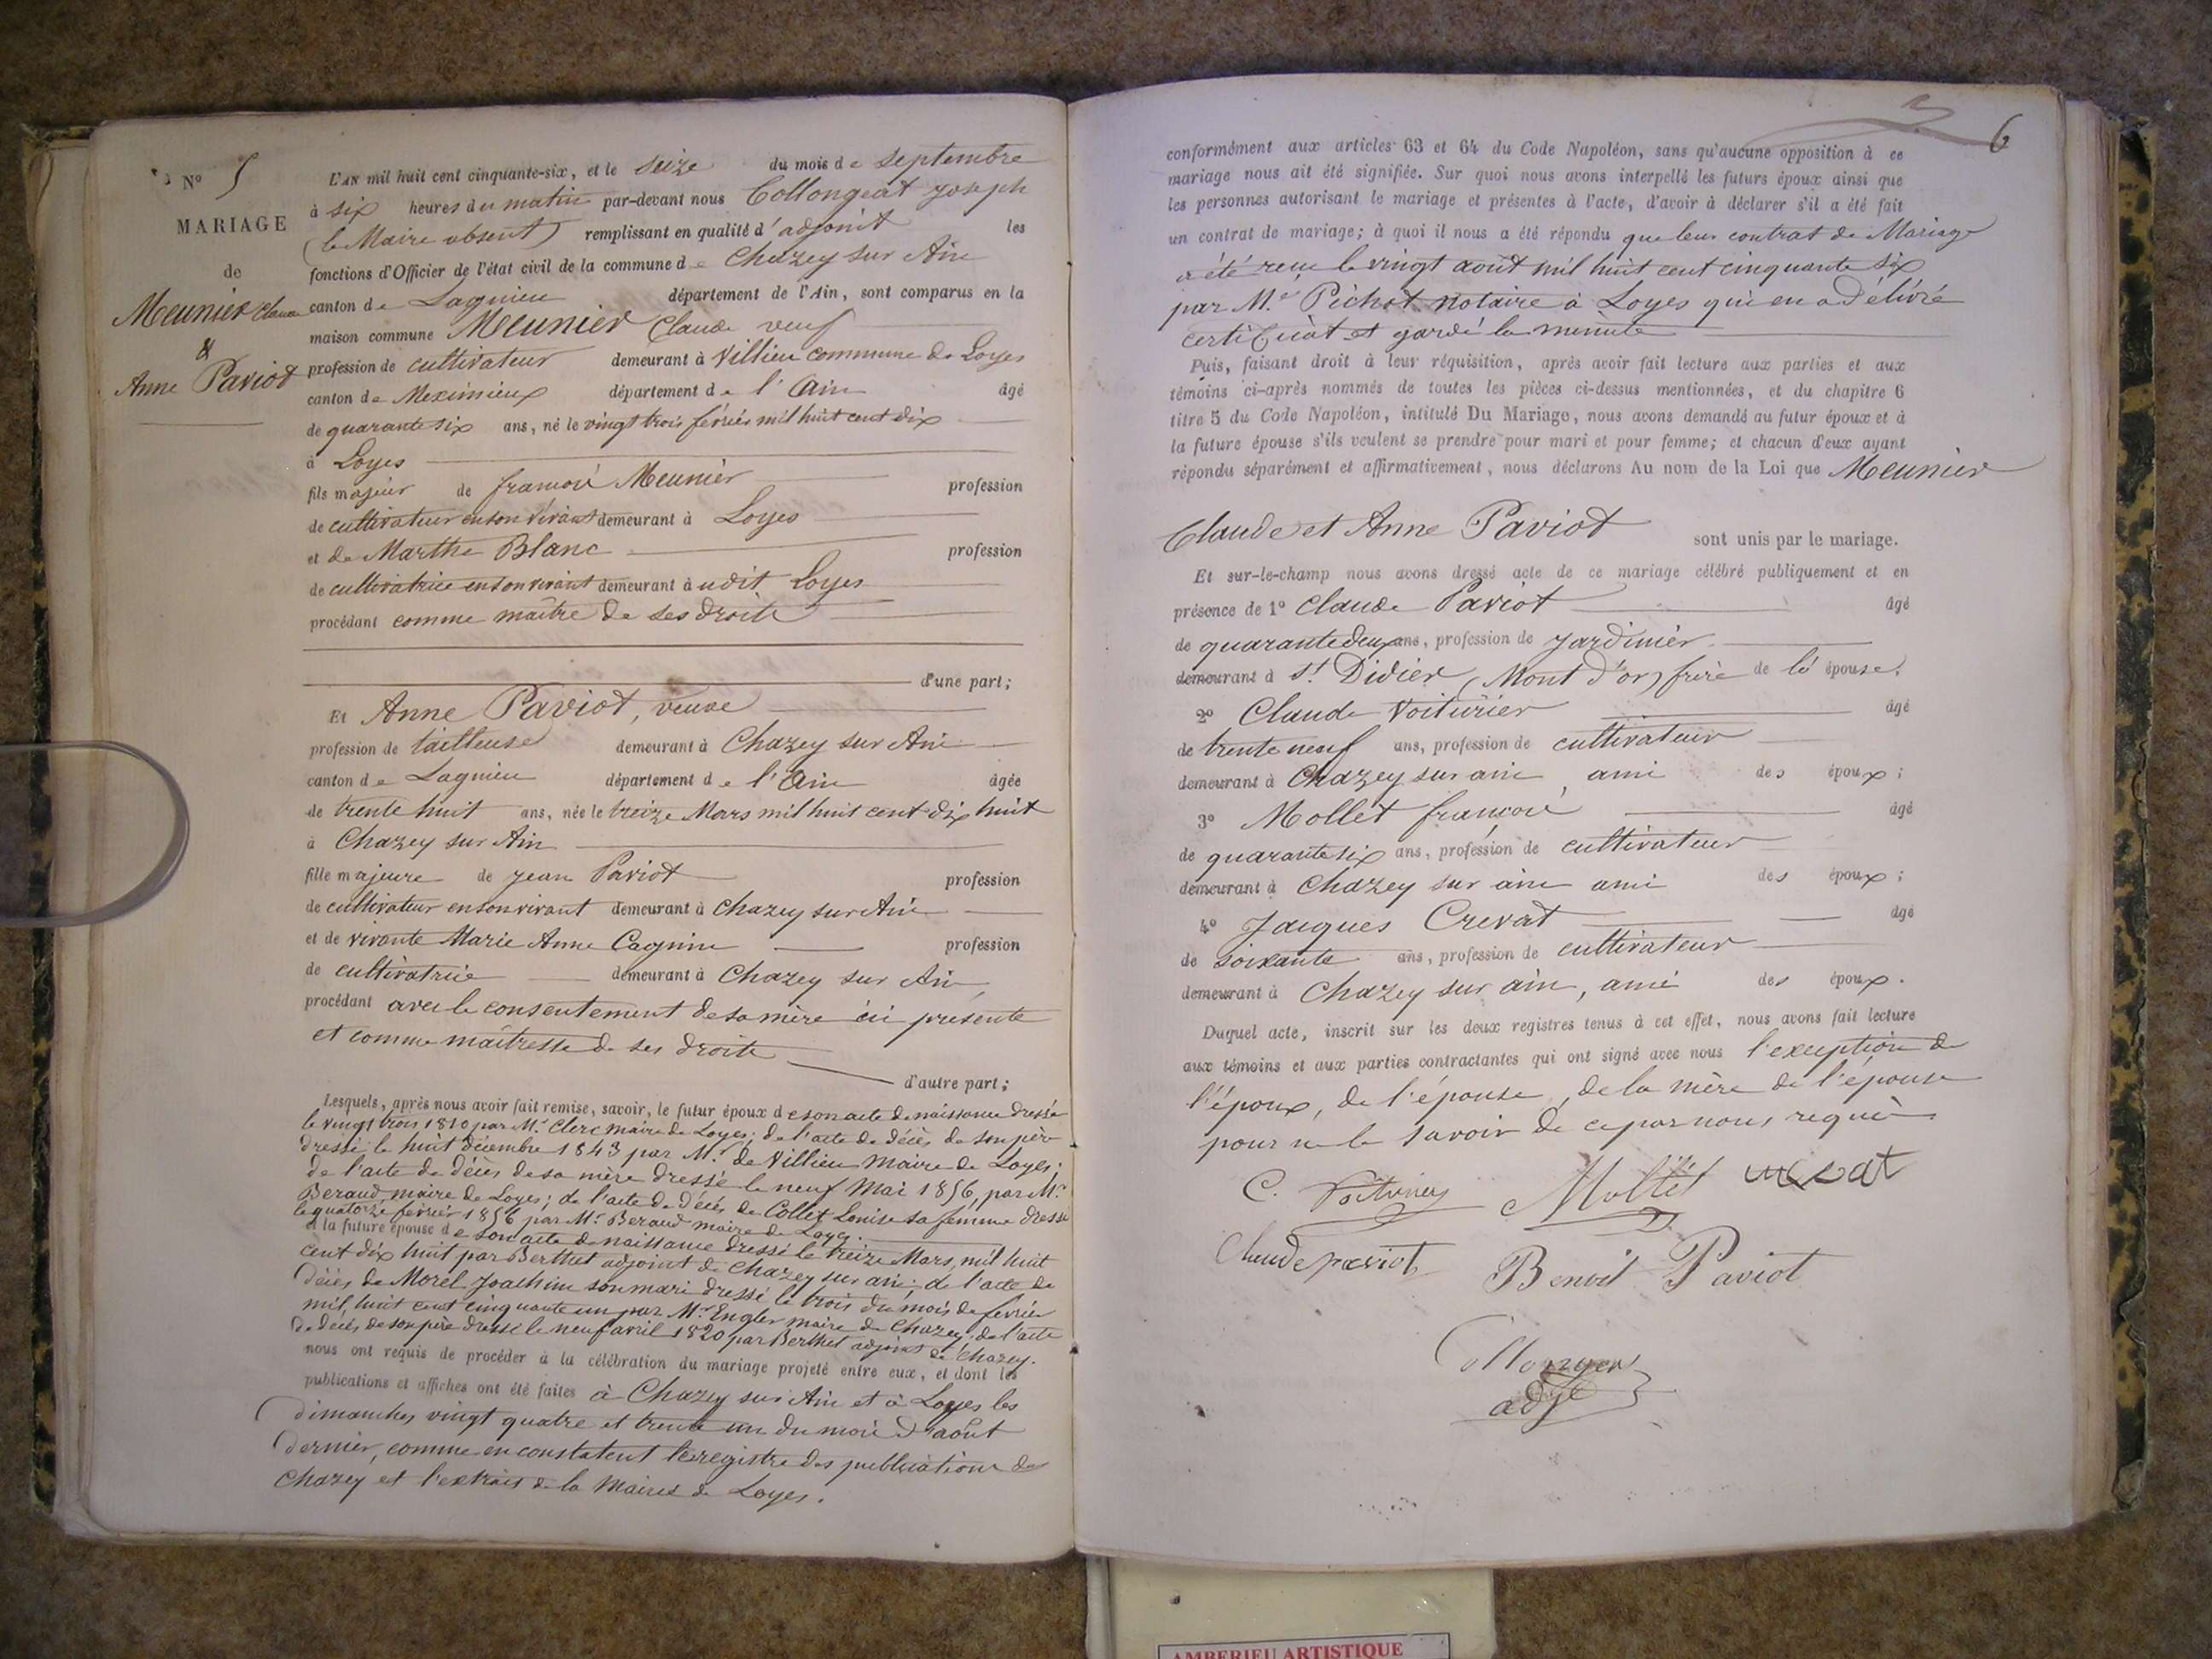 N° 5
MARIAGE
de
Meunier Claude
&
Anne Paviot
L'AN mil huit cent cinquante-six, et le seize du mois de septembre
à six heures du matin par-devant nous Collongeat Joseph
(le Maire absent) remplissant en qualité d'adjoint les
fonctions d'Officier de l'état civil de la commune de Chazey sur Ain
canton de Lagnieu département de l'Ain, sont comparus en la
maison commune Meunier Claude veuf
profession de cultivateur demeurant à Villieu commune de Loyes
canton de Meximieux département de l'Ain âgé
de quarante six ans, né le vingt trois février mil huit cent dix
à Loyes
fils majeur de françois Meunier profession
de cultivateur en son vivant demeurant à Loyes
et de Marthe Blanc profession
de cultivatrice en son vivant demeurant à udit Loyes
procédant comme maître de ses droits
d'une part;
Et Anne Paviot, veuve
profession de tailleuse demeurant à Chazey sur Ain
canton de Lagnieu département de l'Ain âgée
de trente huit ans, née le treize Mars mil huit cent dix huit
à Chazey sur Ain
fille majeure de Jean Paviot profession
de cultivateur en son vivant demeurant à Chazey sur Ain
et de vivante Marie Anne Cagnin profession
de cultivatrice demeurant à Chazey sur Ain,
procédant avec le consentement de sa mère ici présente
et comme maîtresse de ses droits
d'autre part;
Lesquels, après nous avoir fait remise, savoir, le futur époux de son acte de naissance dressé
le vingt trois 1810 par Mr Clerc maire de Loyes; de l'acte de décès de son père
dressé le huit décembre 1843 par Mr de Villieu Maire de Loyes;
de l'acte de décès de sa mère dressé le neuf Mai 1856, par Mr
Beraud maire de Loyes; de l'acte de décès de Collet Louise sa femme dressé
le quatorze février 1856 par Mr Beraud maire de Loyes.
et la future épouse de son acte de naissance dressé le treize Mars, mil huit
cent dix huit par Berthet adjoint de Chazey sur ain; de l'acte de
décès de Morel Joachim son mari dressé le trois du mois de février
mil huit cent cinquante un par Mr Engler maire de Chazey; de l'acte
de décès de son père dressé le neuf avril 1820 par Berthet adjoint de Chazey.
nous ont requis de procéder à la célébration du mariage projeté entre eux, et dont les
publications et affiches ont été faites à Chazey sur Ain et à Loyes les
dimanches vingt quatre et trente un du mois d'août
dernier, comme en constatent le registre des publications de
Chazey et l'extrait de la Mairie de Loyes.
6
conformément aux articles 63 et 64 du Code Napoléon, sans qu'aucune opposition à ce
mariage nous ait été signifiée. Sur quoi nous avons interpellé les futurs époux ainsi que
les personnes autorisant le mariage et présentes à l'acte, d'avoir à déclarer s'il a été fait
un contrat de mariage; à quoi il nous a été répondu que leur contrat de Mariage
a été reçu le vingt août mil huit cent cinquante six
par Me Pichot notaire à Loyes qui en a délivré
certificat et gardé la minute
Puis, faisant droit à leur réquisition, après avoir fait lecture aux parties et aux
témoins ci-après nommés de toutes les pièces ci-dessus mentionnées, et du chapitre 6
titre 5 du Code Napoléon, intitulé Du Mariage, nous avons demandé au futur époux et à
la future épouse s'ils veulent se prendre pour mari et pour femme; et chacun d'eux ayant
répondu séparément et affirmativement, nous déclarons Au nom de la Loi que Meunier
Claude et Anne Paviot sont unis par le mariage.
Et sur-le-champ nous avons dressé acte de ce mariage célébré publiquement et en
présence de 1° Claude Paviot âgé
de quarante deux ans, profession de jardinier
demeurant à St Didier (Mont d'or) frère de l'é épouse.
2° Claude Voiturier âgé
de trente neuf ans, profession de cultivateur
demeurant à Chazey sur ain, ami des époux;
3° Mollet françois âgé
de quarante six ans, profession de cultivateur
demeurant à Chazey sur ain ami des époux;
4° Jacques Crevat âgé
de soixante ans, profession de cultivateur
demeurant à Chazey sur ain, ami des époux.
Duquel acte, inscrit sur les deux registres tenus à cet effet, nous avons fait lecture
aux témoins et aux parties contractantes qui ont signé avec nous l'exception de
l'époux, de l'épouse, de la mère de l'épouse
pour ne le savoir de ce par nous requis
C. Voiturier Mollet
Claude paviot Benoit Paviot
adjt
AMBERIEU ARTISTIQUE